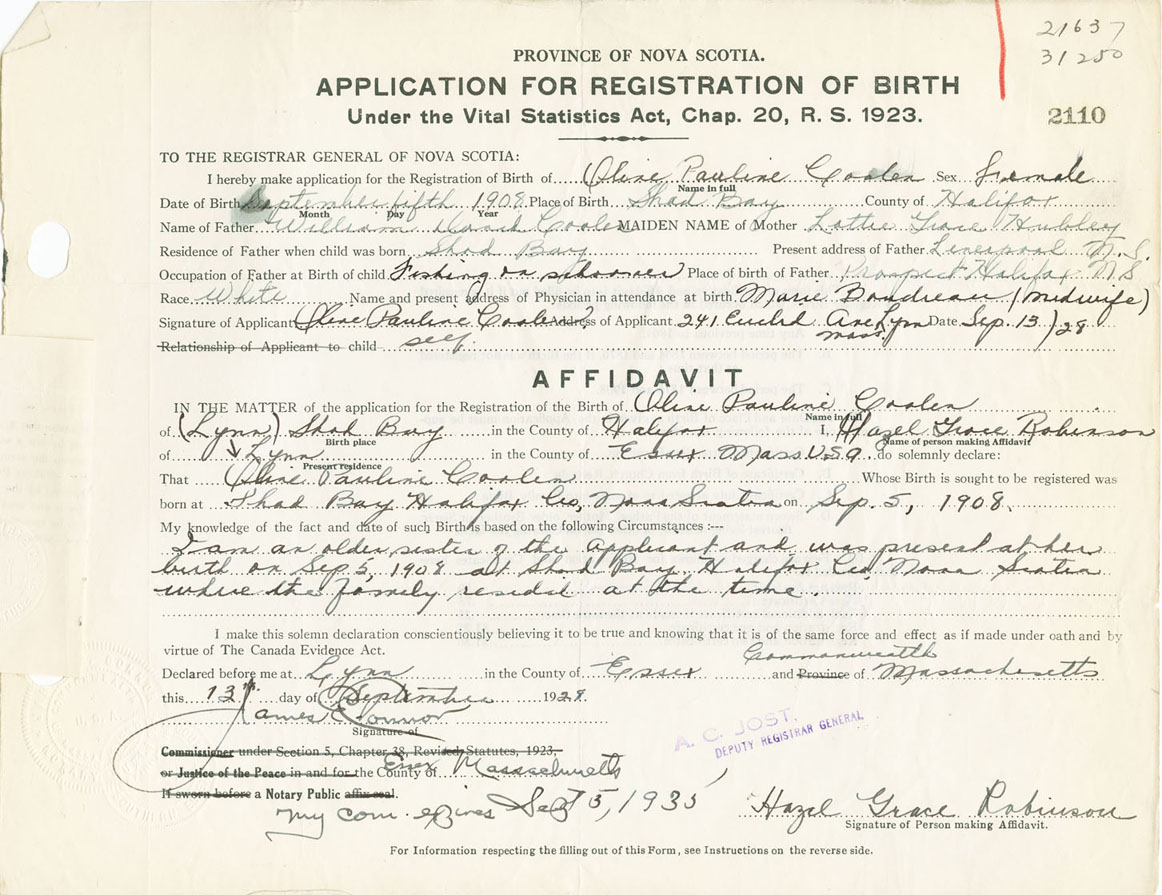 21637
31250
PROVINCE OF NOVA SCOTIA.
APPLICATION FOR REGISTRATION OF BIRTH
Under the Vital Statistics Act, Chap. 20, R. S. 1923.
2110
TO THE REGISTRAR GENERAL OF NOVA SCOTIA:
I hereby make application for the Registration of Birth of Olive Pauline Coolen Sex Female
Name in full
Date of Birth September fifth 1908 Place of Birth Shad Bay County of Halifax
Month Day Year
Name of Father William Coolen MAIDEN NAME of Mother Lottie Grace Hubley
Residence of Father when child was born Shad Bay Present address of Father Liverpool N.S.
Occupation of Father at Birth of child Fishing on schooner Place of birth of Father Prospect Halifax N.S
Race White Name and present address of Physician in attendance at birth Marie Boudreau (Midwife)
Signature of Applicant Olive Pauline Coolen Address of Applicant 241 Euclid Ave Lynn Mass. Date Sep. 13/28
Relationship of Applicant to child self
AFFIDAVIT
IN THE MATTER of the application for the Registration of the Birth of Olive Pauline Coolen
Name in full
of (Lynn) Shad Bay in the County of Halifax I, Hazel Grace Robinson
Birth place Name of person making Affidavit
of Lynn in the County of Essex Mass U.S.A. do solemnly declare:
Present residence
That Olive Pauline Coolen Whose Birth is sought to be registered was
born at Shad Bay Halifax Co, Nova Scotia on Sep. 5, 1908.
My knowledge of the fact and date of such Birth is based on the following Circumstances :---
I am an older sister of the applicant and was present at her
birth on Sep. 5, 1908 at Shad Bay Halifax Co, Nova Scotia
where the family resided at the time.
I make this solemn declaration conscientiously believing it to be true and knowing that it is of the same force and effect as if made under oath and by
virtue of The Canada Evidence Act.
Commonwealth
Declared before me at Lynn in the County of Essex and Province of Massachusetts
this 13th day of September 1928.
James E Connor
Signature of
A. C. JOST,
DEPUTY REGISTRAR GENERAL
Commissioner under Section 5, Chapter 38, Revised Statutes, 1923,
or Justice of the Peace in and for the County of Essex Massachusetts
If sworn before a Notary Public affix seal.
My com. expires Sept 5, 1935
Hazel Grace Robinson
Signature of Person making Affidavit.
For Information respecting the filling out of this Form, see Instructions on the reverse side.